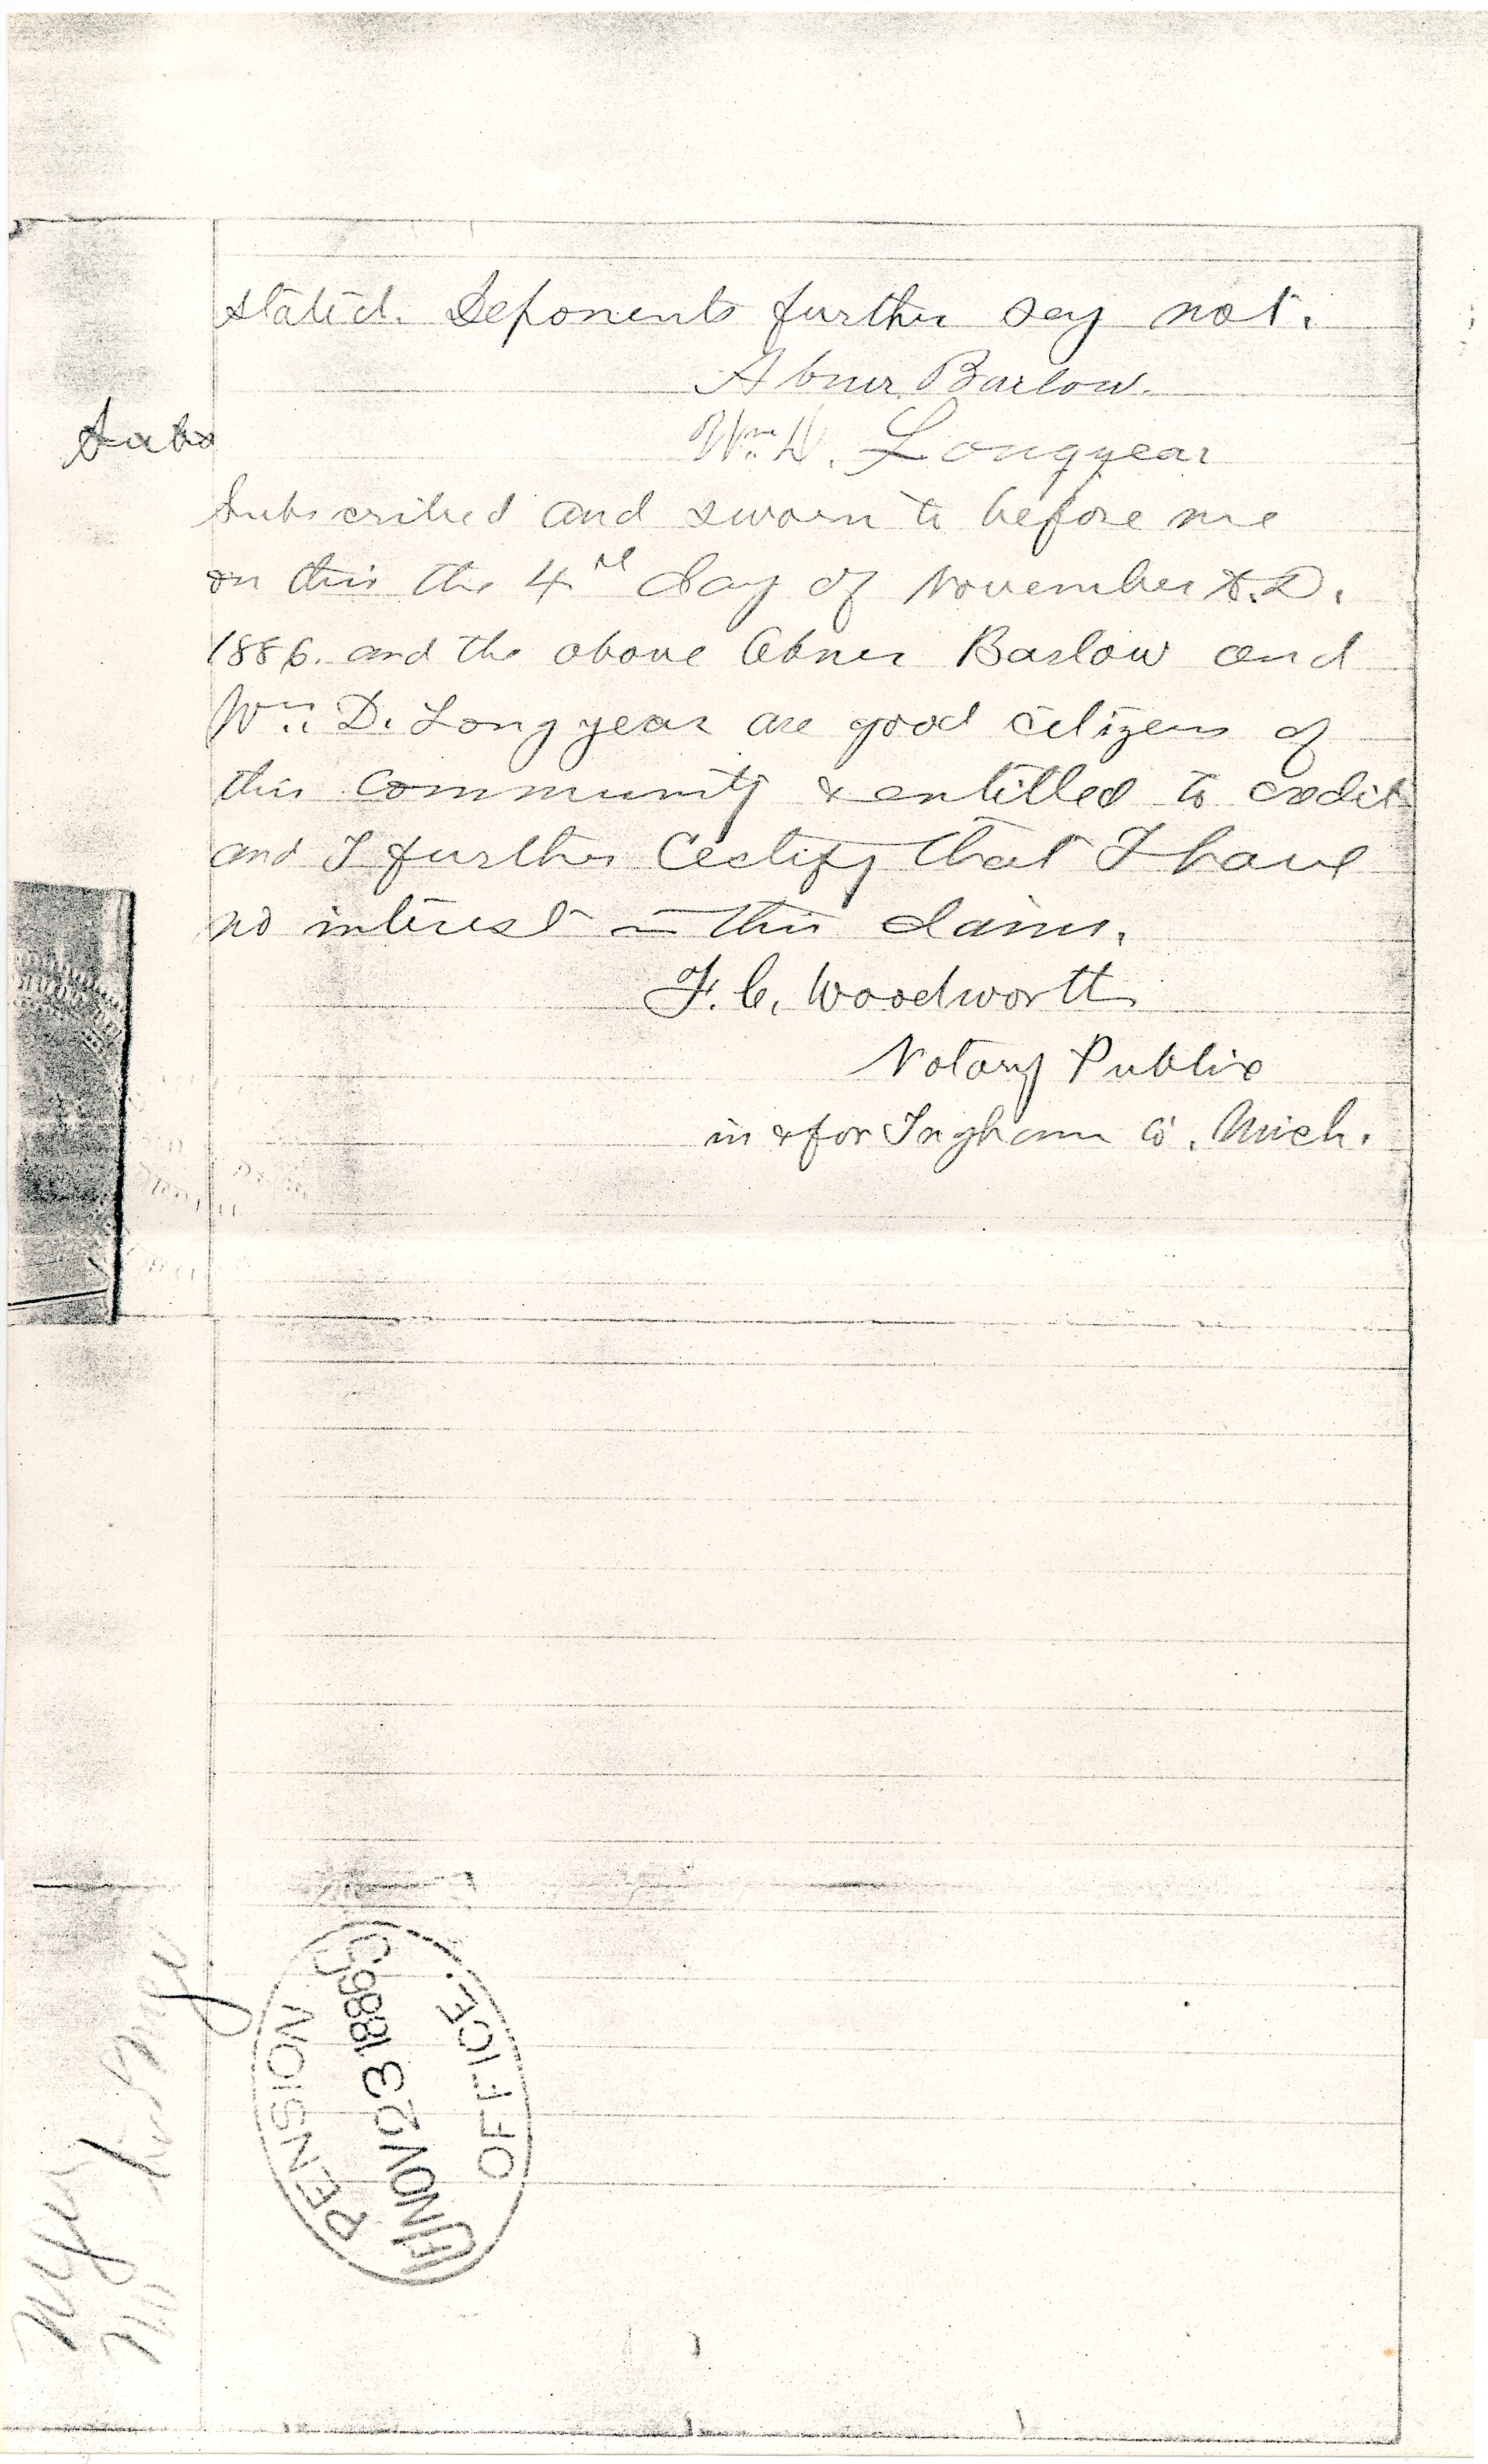 stated. Deponents further say not.
Abner Barlow.
Subs
Wm. D. Longyear
Subscribed and sworn to before me
on this the 4th day of November A.D.
1886. and the above Abner Barlow and
Wm. D. Longyear are good citizens of
this community & entitled to credit
and I further Certify that I have
no interest in this claim.
F. C. Woodworth
Notary Public
in & for Ingham Co. Mich.
PENSION
NOV 23 1886
OFFICE.